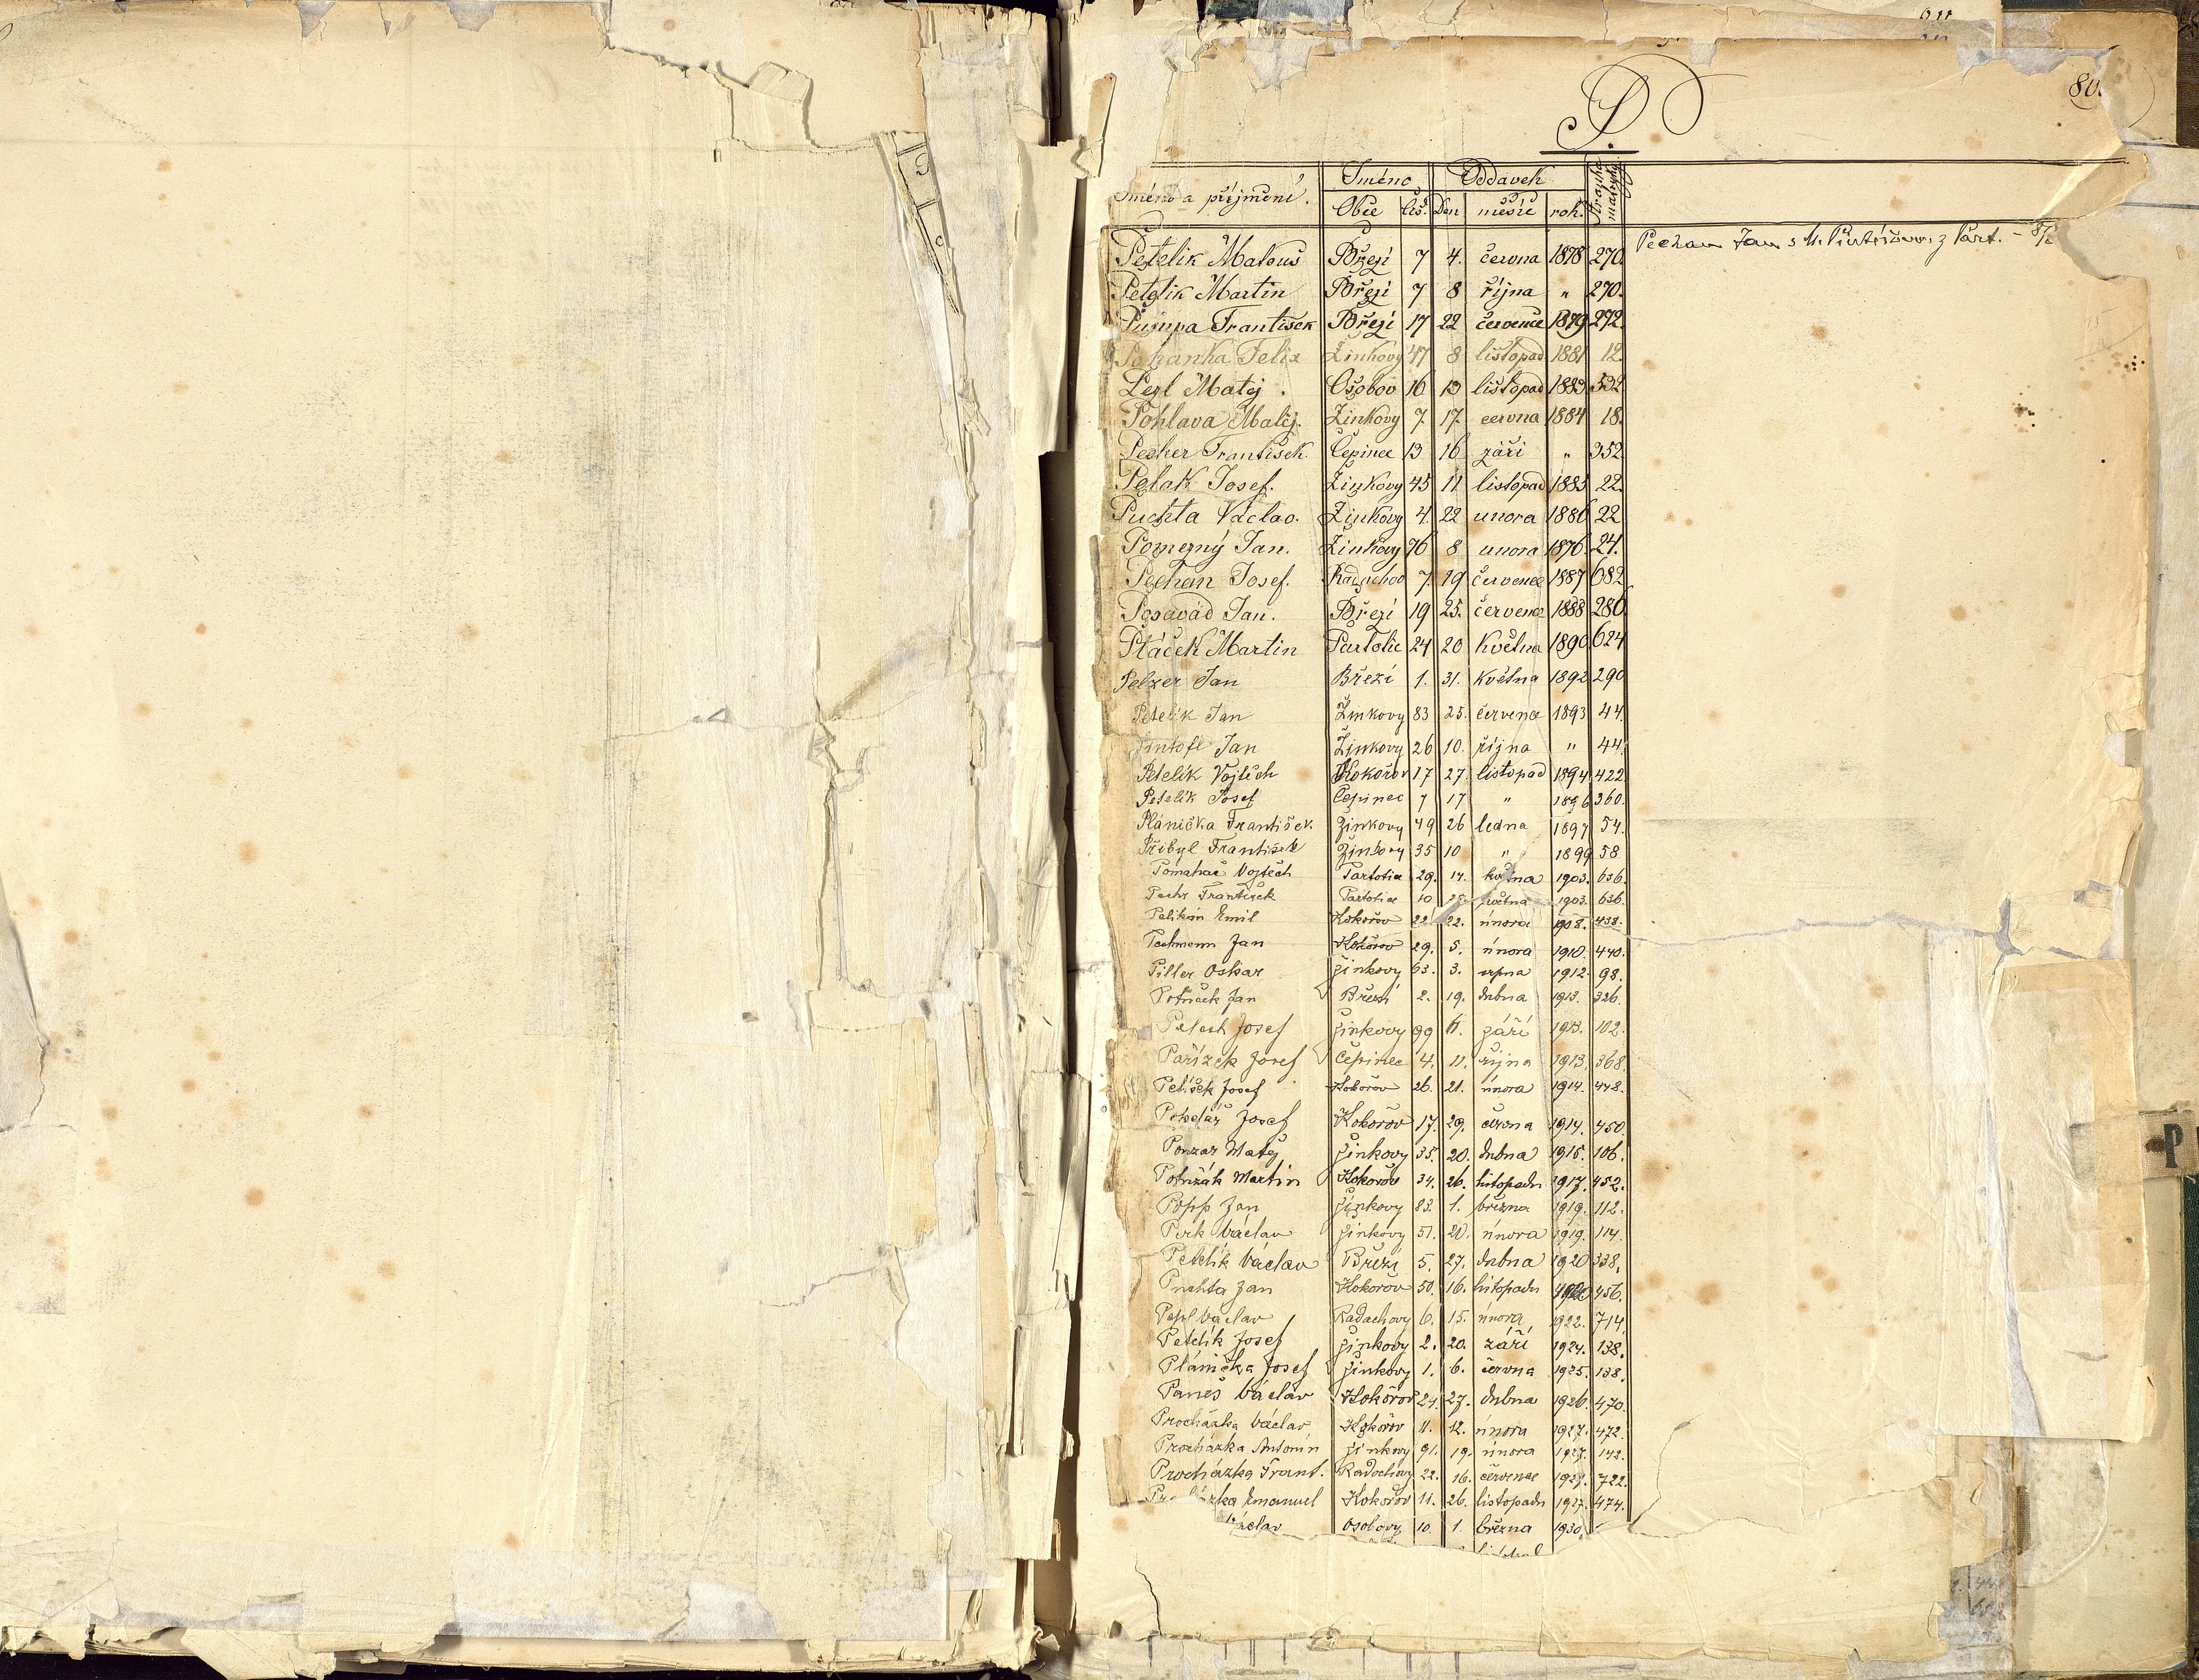 80
P.
Jméno a příjmení. Jméno Oddavek Stránka matriky
Obce Čís. Den měsíc rok.
Petelik Matouš Březí 7 4. června 1878 270.
Pechan Jan s M. z Part. -
Petelik Martin Březí 7 8 října " 270.
František Březí 17 22 července 1879 272.
Pohanka Felix Žinkovy 47 8 listopad 1881 12.
Matěj Osobov 16 13 listopad 1883 532
Pohlava Matěj. Žinkovy 7 17. června 1884 18.
Pecher František Čepinec 13 16 září " 352
Pelak Josef. Žinkovy 45 11 listopad 1885 22.
Puchta Václav. Žinkovy 4. 22 unora 1886 22
Pomezný Jan. Žinkovy 76 8 unora 1876. 24.
Pechan Josef. Radochov 7. 19 července 1887 682
Posavád Jan. Březí 19 25. července 1888 286
Ptáček Martin Partotic 24 20 Května 1890 624
Pelzer Jan Březí 1. 31. května 1892 290
Petelík Jan Žinkovy 83 25. července 1893 44.
Jan Žinkovy 26 10. října " 44.
Petelík Vojtěch Kokořov 17 27. listopad 1894 422
Petelík Josef Čepinec 7 17 " 1896 360.
Plánička František Žinkovy 49 26 ledna 1897 54.
Přibyl František Žinkovy 35 10 " 1899 58
Pomahač Vojtěch Partotice 29. 14. května 1903. 636.
František Partotice 10 května 1903. 636.
Pelikán Emil Kokořov 22. 22. února 1908. 438.
Jan Kokořov 29. 5. února 1910. 440.
Piller Oskar Žinkovy 63. 3. srpna 1912. 98.
Potůček Jan Březí 2. 19. dubna 1913. 326.
Pelech Josef Žinkovy 99 září 1913. 102.
Pařízek Josef Čepinec 4. 11. října 1913. 368.
Pelíšek Josef Kokořov 26. 21. února 1914. 448.
Josef Kokořov 17. 29. června 1914. 450
Ponzar Matěj Žinkovy 35. 20. dubna 1915. 106.
Martin Kokořov 34. 26. listopadu 1917. 452.
Popp Jan Žinkovy 83. 1. března 1919. 112.
Václav Žinkovy 51. 20. února 1919. 114.
Petelík Václav Březí 5. 27. dubna 1920 338.
Puchta Jan Kokořov 50. 16. listopadu 1920 456.
Václav Radochovy 6. 15. února 1922. 714.
Petelík Josef Žinkovy 2. 20. září 1924. 138.
Plánička Josef Žinkovy 1. 6. června 1925. 138.
Paneš Václav Kokořov 24. 27. dubna 1926. 470.
Procházka Václav Kokořov 11. 12. února 1927. 472.
Procházka Antonín Žinkovy 91. 19. února 1927. 142.
Procházka Frant. Radochovy 22. 16. července 1927. 722.
Procházka Emanuel Kokořov 11. 26. listopadu 1927. 474.
Václav Osobovy 10. 1. března 1930.
P